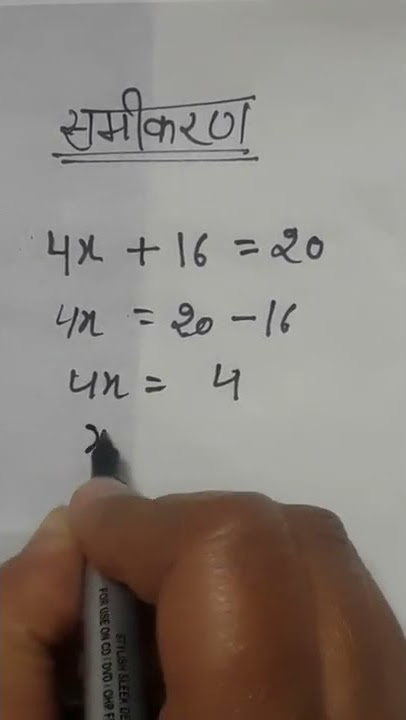 समीकरण
4x + 16 = 20
4x = 20 - 16
4x = 4
x
STYLISH SLEEK DE
FOR USE ON CD | DVD | OHP F